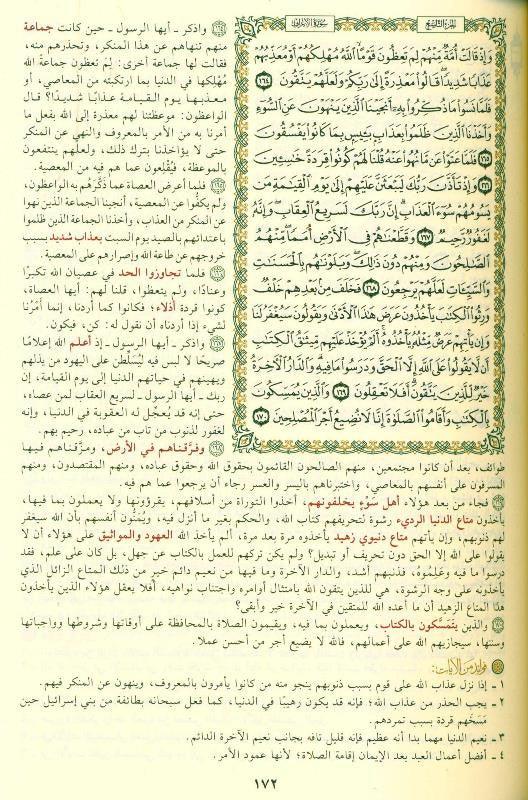 الجزء التاسع
سورة الأعراف
وَإِذْ قَالَتْ أُمَّةٌ مِّنْهُمْ لِمَ تَعِظُونَ قَوْمًا ٱللَّهُ مُهْلِكُهُمْ أَوْ مُعَذِّبُهُمْ
عَذَابًا شَدِيدًا قَالُوا۟ مَعْذِرَةً إِلَىٰ رَبِّكُمْ وَلَعَلَّهُمْ يَتَّقُونَ ١٦٤
فَلَمَّا نَسُوا۟ مَا ذُكِّرُوا۟ بِهِۦٓ أَنجَيْنَا ٱلَّذِينَ يَنْهَوْنَ عَنِ ٱلسُّوٓءِ
وَأَخَذْنَا ٱلَّذِينَ ظَلَمُوا۟ بِعَذَابٍۭ بَـِٔيسٍۭ بِمَا كَانُوا۟ يَفْسُقُونَ
١٦٥ فَلَمَّا عَتَوْا۟ عَن مَّا نُهُوا۟ عَنْهُ قُلْنَا لَهُمْ كُونُوا۟ قِرَدَةً خَـٰسِـِٔينَ
١٦٦ وَإِذْ تَأَذَّنَ رَبُّكَ لَيَبْعَثَنَّ عَلَيْهِمْ إِلَىٰ يَوْمِ ٱلْقِيَـٰمَةِ مَن
يَسُومُهُمْ سُوٓءَ ٱلْعَذَابِ إِنَّ رَبَّكَ لَسَرِيعُ ٱلْعِقَابِ وَإِنَّهُۥ
لَغَفُورٌ رَّحِيمٌ ١٦٧ وَقَطَّعْنَـٰهُمْ فِى ٱلْأَرْضِ أُمَمًا مِّنْهُمُ
ٱلصَّـٰلِحُونَ وَمِنْهُمْ دُونَ ذَٰلِكَ وَبَلَوْنَـٰهُم بِٱلْحَسَنَـٰتِ
وَٱلسَّيِّـَٔاتِ لَعَلَّهُمْ يَرْجِعُونَ ١٦٨ فَخَلَفَ مِنۢ بَعْدِهِمْ خَلْفٌ
وَرِثُوا۟ ٱلْكِتَـٰبَ يَأْخُذُونَ عَرَضَ هَـٰذَا ٱلْأَدْنَىٰ وَيَقُولُونَ سَيُغْفَرُ لَنَا
وَإِن يَأْتِهِمْ عَرَضٌ مِّثْلُهُۥ يَأْخُذُوهُ أَلَمْ يُؤْخَذْ عَلَيْهِم مِّيثَـٰقُ ٱلْكِتَـٰبِ
أَن لَّا يَقُولُوا۟ عَلَى ٱللَّهِ إِلَّا ٱلْحَقَّ وَدَرَسُوا۟ مَا فِيهِ وَٱلدَّارُ ٱلْـَٔاخِرَةُ
خَيْرٌ لِّلَّذِينَ يَتَّقُونَ أَفَلَا تَعْقِلُونَ ١٦٩ وَٱلَّذِينَ يُمَسِّكُونَ
بِٱلْكِتَـٰبِ وَأَقَامُوا۟ ٱلصَّلَوٰةَ إِنَّا لَا نُضِيعُ أَجْرَ ٱلْمُصْلِحِينَ ١٧٠
١٦٤ واذكر ـ أيها الرسول ـ حين كانت جماعة
منهم تنهاهم عن هذا المنكر، وتحذرهم منه،
فقالت لها جماعة أخرى: لِمَ تعظون جماعة الله
مُهْلِكها في الدنيا بما ارتكبته من المعاصي، أو
معذبها يوم القيامة عذابًا شديدًا؟ قال
الواعظون: موعظتنا لهم معذرة إلى الله بفعل ما
أمرنا به من الأمر بالمعروف والنهي عن المنكر
حتى لا يؤاخذنا بترك ذلك، ولعلهم ينتفعون
بالموعظة، فيُقْلِعون عما هم فيه من المعصية.
١٦٥ فلما أعرض العصاة عما ذَكَّرَهُم به الواعظون،
ولم يكفّوا عن المعصية، أنجينا الجماعة الذين نهوا
عن المنكر من العذاب، وأخذنا الجماعة الذين ظلموا
باعتدائهم بالصيد يوم السبت بعذاب شديد بسبب
خروجهم عن طاعة الله وإصرارهم على المعصية.
١٦٦ فلما تجاوزوا الحد في عصيان الله تكبرًا
وعنادًا، ولم يتعظوا، قلنا لهم: أيها العصاة،
كونوا قردة أذلاء؛ فكانوا كما أردنا، إنما أَمْرُنا
لشيء إذا أردناه أن نقول له: كن، فيكون.
١٦٧ واذكر ـ أيها الرسول ـ إذ أعلم الله إعلامًا
صريحًا لا لبس فيه ليُسَلِّطن على اليهود من يذلهم
ويهينهم في حياتهم الدنيا إلى يوم القيامة، إن
ربك ـ أيها الرسول ـ لسريع العقاب لمن عصاه،
حتى إنه قد يُعجِّل له العقوبة في الدنيا، وإنه
لغفور لذنوب من تاب من عباده، رحيم بهم.
١٦٨ وفرَّقناهم في الأرض، ومزَّقناهم فيها
طوائف، بعد أن كانوا مجتمعين، منهم الصالحون القائمون بحقوق الله وحقوق عباده، ومنهم المقتصدون، ومنهم
المسرفون على أنفسهم بالمعاصي، واختبرناهم باليسر والعسر رجاء أن يرجعوا عما هم فيه.
١٦٩ فجاء من بعد هؤلاء أهل سَوْءٍ يخلفونهم، أخذوا التوراة من أسلافهم، يقرؤونها ولا يعملون بما فيها،
يأخذون متاع الدنيا الرديء رشوة لتحريفهم كتاب الله، والحكم بغير ما أنزل فيه، ويُمَنُّون أنفسهم بأن الله سيغفر
لهم ذنوبهم، وإن يأتهم متاع دنيوي زهيد يأخذوه مرة بعد مرة، ألم يأخذ الله العهود والمواثيق على هؤلاء أن لا
يقولوا على الله إلا الحق دون تحريف أو تبديل؟ ولم يكن تركهم للعمل بالكتاب عن جهل، بل كان على علم، فقد
درسوا ما فيه وعَلِمُوهُ، فذنبهم أشد، والدار الآخرة وما فيها من نعيم دائم خير من ذلك المتاع الزائل الذي
يأخذونه على وجه الرشوة، هي للذين يتقون الله بامتثال أوامره واجتناب نواهيه، أفلا يعقل هؤلاء الذين يأخذون
هذا المتاع الزهيد أن ما أعده الله للمتقين في الآخرة خير وأبقى؟
١٧٠ والذين يتمَسَّكون بالكتاب، ويعملون بما فيه، ويقيمون الصلاة بالمحافظة على أوقاتها وشروطها وواجباتها
وسننها، سيجازيهم الله على أعمالهم، فالله لا يضيع أجر من أحسن عملًا.
فوائد من الآيات:
١ ـ إذا نزل عذاب الله على قوم بسبب ذنوبهم ينجو منه من كانوا يأمرون بالمعروف، وينهون عن المنكر فيهم.
٢ ـ يجب الحذر من عذاب الله؛ فإنه قد يكون رهيبًا في الدنيا، كما فعل سبحانه بطائفة من بني إسرائيل حين
مَسَخَهم قردة بسبب تمردهم.
٣ ـ نعيم الدنيا مهما بدا أنه عظيم فإنه قليل تافه بجانب نعيم الآخرة الدائم.
٤ ـ أفضل أعمال العبد بعد الإيمان إقامة الصلاة؛ لأنها عمود الأمر.
١٧٢